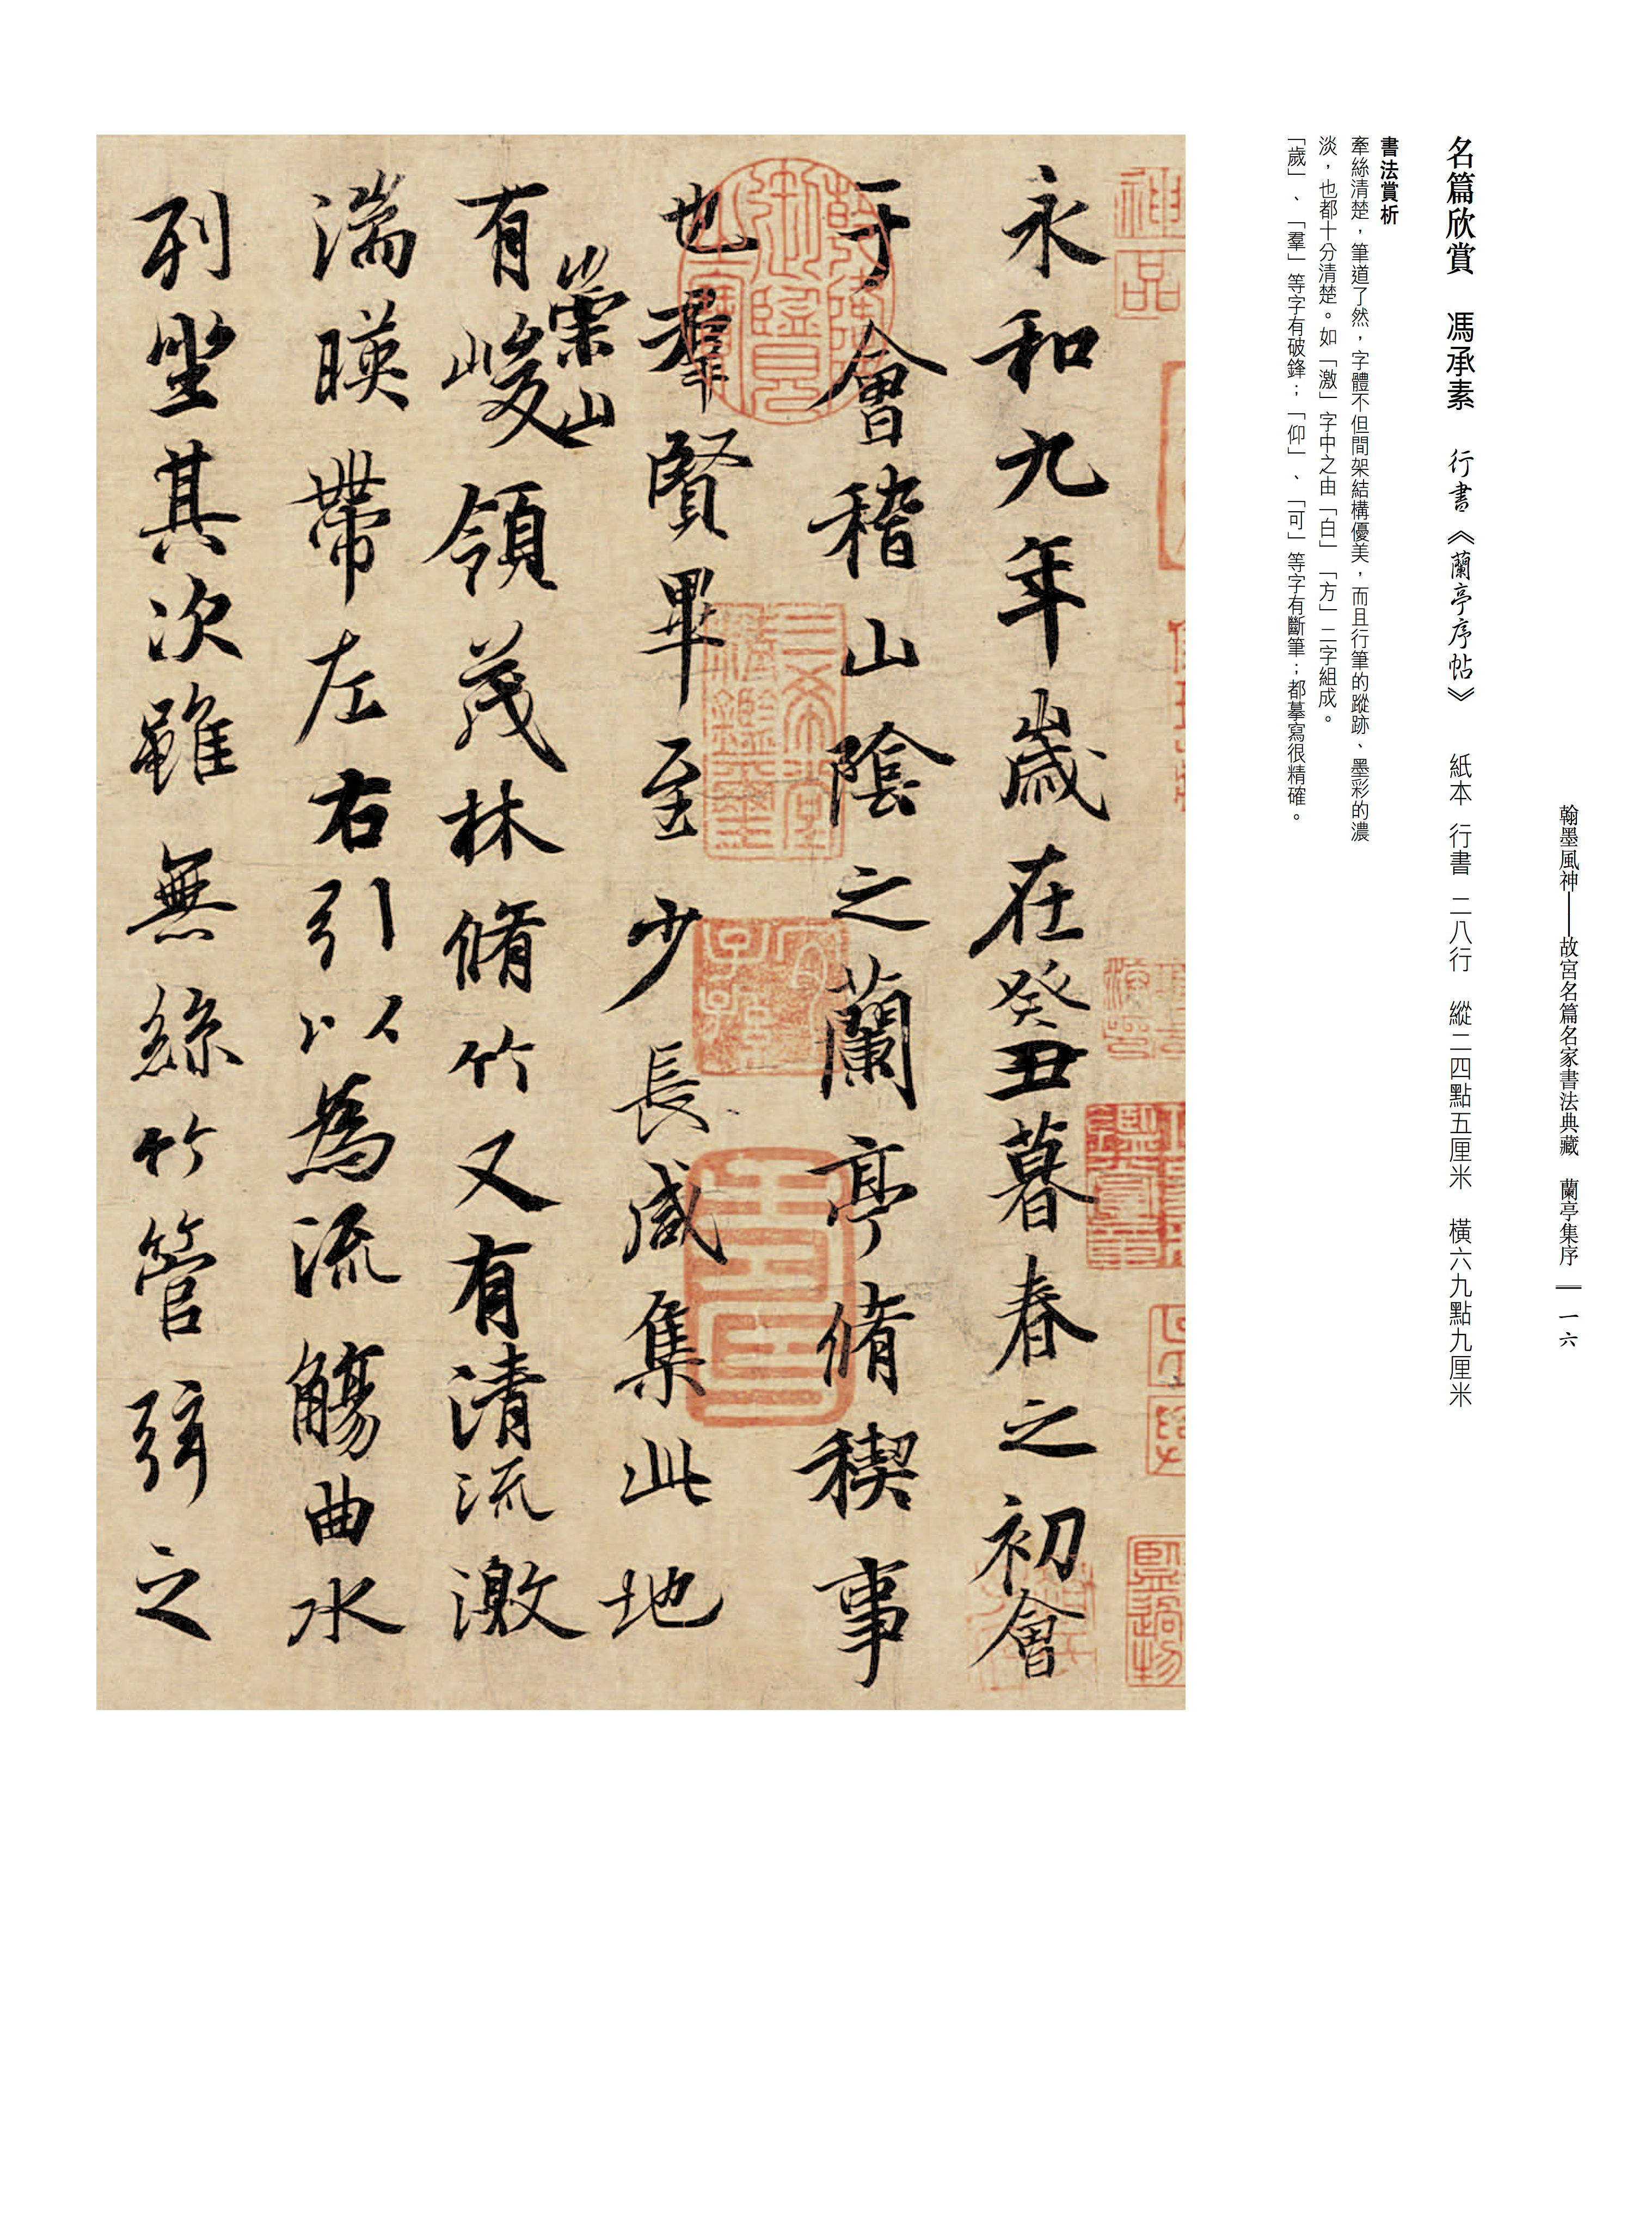 翰墨風神——故宮名篇名家書法典藏　蘭亭集序　一六
名篇欣賞　馮承素　行書《蘭亭序帖》　紙本　行書　二八行　縱二四點五厘米　橫六九點九厘米
書法賞析
牽絲清楚，筆道了然，字體不但間架結構優美，而且行筆的蹤跡、墨彩的濃
淡，也都十分清楚。如「激」字中之由「白」「方」二字組成。
「歲」、「羣」等字有破鋒；「仰」、「可」等字有斷筆；都摹寫很精確。
永和九年歲在癸丑暮春之初會
于會稽山陰之蘭亭脩稧事
也羣賢畢至少長咸集此地
崇山
有峻領茂林脩竹又有清流激
湍暎帶左右引以為流觴曲水
列坐其次雖無絲竹管弦之